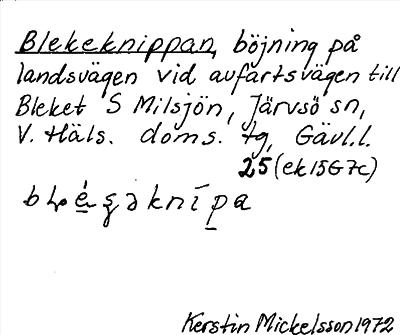 Blekeknippan, böjning på
landsvägen vid avfartsvägen till
Bleket S Milsjön, Järvsö sn,
V. Häls. doms. tg, Gävl.l.
25 (ek 15G7c)
Kerstin Mickelsson 1972